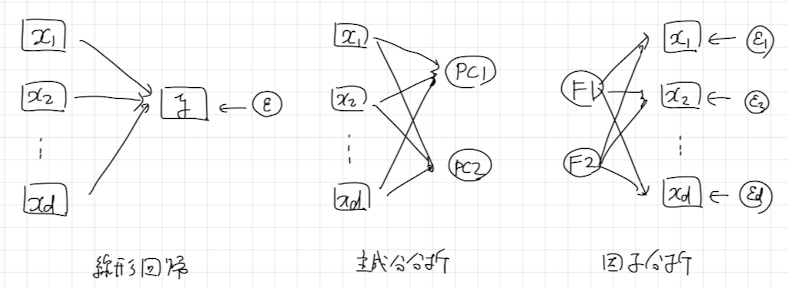 x1
x2
xd
y
ε
線形回帰
x1
x2
xd
PC1
PC2
主成分分析
F1
F2
x1
x2
xd
ε1
ε2
εd
因子分析